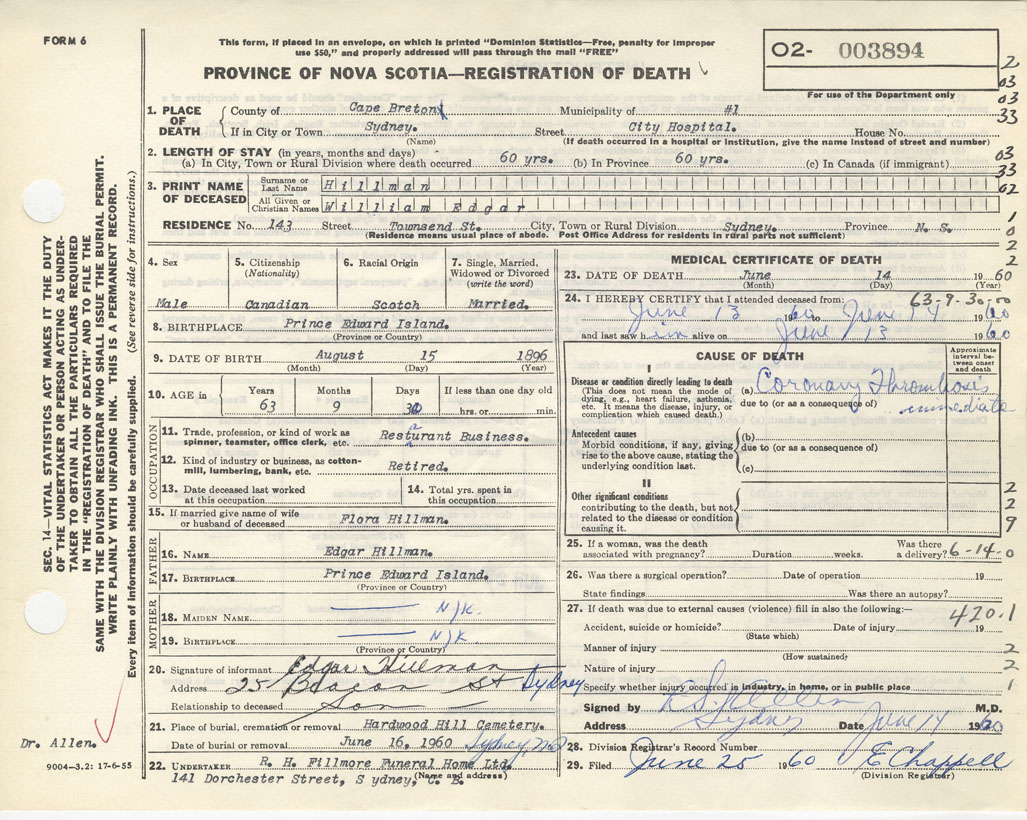 FORM 6
This form, if placed in an envelope, on which is printed "Dominion Statistics—Free, penalty for improper
use $50," and properly addressed will pass through the mail "FREE"
PROVINCE OF NOVA SCOTIA—REGISTRATION OF DEATH
O2- 003894
For use of the Department only
2
03
33
1. PLACE OF DEATH County of Cape Breton Municipality of #1
If in City or Town Sydney. Street City Hospital. House No.
(Name) (If death occurred in a hospital or institution, give the name instead of street and number)
2. LENGTH OF STAY (in years, months and days)
(a) In City, Town or Rural Division where death occurred 60 yrs. (b) In Province 60 yrs. (c) In Canada (if immigrant)
03
33
02
3. PRINT NAME OF DECEASED Surname or Last Name Hillman
All Given or Christian Names William Edgar
RESIDENCE No. 143 Street Townsend St. City, Town or Rural Division Sydney. Province N. S.
(Residence means usual place of abode. Post Office Address for residents in rural parts not sufficient)
1
0
2
2
4. Sex Male
5. Citizenship (Nationality) Canadian
6. Racial Origin Scotch
7. Single, Married, Widowed or Divorced (write the word) Married.
8. BIRTHPLACE Prince Edward Island.
(Province or Country)
9. DATE OF BIRTH August 15 1896
(Month) (Day) (Year)
10. AGE in Years 63 Months 9 Days 30 If less than one day old hrs. or min.
OCCUPATION
11. Trade, profession, or kind of work as spinner, teamster, office clerk, etc. Resturant Business.
a
12. Kind of industry or business, as cotton-mill, lumbering, bank, etc. Retired.
13. Date deceased last worked at this occupation
14. Total yrs. spent in this occupation
15. If married give name of wife or husband of deceased Flora Hillman.
FATHER
16. NAME Edgar Hillman.
17. BIRTHPLACE Prince Edward Island.
(Province or Country)
MOTHER
18. MAIDEN NAME N/K.
19. BIRTHPLACE N/K.
(Province or Country)
20. Signature of informant Edgar Hillman
Address 25 Beacon St Sydney
Relationship to deceased Son
21. Place of burial, cremation or removal Hardwood Hill Cemetery.
Date of burial or removal June 16, 1960 Sydney, N.S.
22. UNDERTAKER R. H. Fillmore Funeral Home Ltd.
(Name and address)
141 Dorchester Street, S ydney, C. B.
MEDICAL CERTIFICATE OF DEATH
23. DATE OF DEATH June 14 1960
(Month) (Day) (Year)
63-9-30-00
24. I HEREBY CERTIFY that I attended deceased from:
June 13 1960 to June 14 1960
and last saw him alive on June 13 1960
CAUSE OF DEATH
Approximate interval between onset and death
I
Disease or condition directly leading to death
(This does not mean the mode of dying, e.g., heart failure, asthenia, etc. It means the disease, injury, or complication which caused death.)
(a) Coronary Thrombosis
due to (or as a consequence of) immediate
Antecedent causes
Morbid conditions, if any, giving rise to the above cause, stating the underlying condition last.
(b)
due to (or as a consequence of)
(c)
II
Other significant conditions contributing to the death, but not related to the disease or condition causing it.
2
2
9
25. If a woman, was the death associated with pregnancy? Duration weeks. Was there a delivery? 6-14-0
26. Was there a surgical operation? Date of operation 19
State findings Was there an autopsy?
27. If death was due to external causes (violence) fill in also the following:—
420.1
Accident, suicide or homicide? Date of injury 19
(State which)
Manner of injury 2
(How sustained)
Nature of injury 2
Specify whether injury occurred in industry, in home, or in public place 1
Signed by M.D.
Address Sydney Date June 14 1960
28. Division Registrar's Record Number
29. Filed June 25 1960 E Chappell
(Division Registrar)
SEC. 14—VITAL STATISTICS ACT MAKES IT THE DUTY
OF THE UNDERTAKER OR PERSON ACTING AS UNDER-
TAKER TO OBTAIN ALL THE PARTICULARS REQUIRED
IN THE "REGISTRATION OF DEATH" AND TO FILE THE
SAME WITH THE DIVISION REGISTRAR WHO SHALL ISSUE THE BURIAL PERMIT.
WRITE PLAINLY WITH UNFADING INK. THIS IS A PERMANENT RECORD.
Every item of information should be carefully supplied. (See reverse side for instructions.)
Dr. Allen.
9004-3.2: 17-6-55